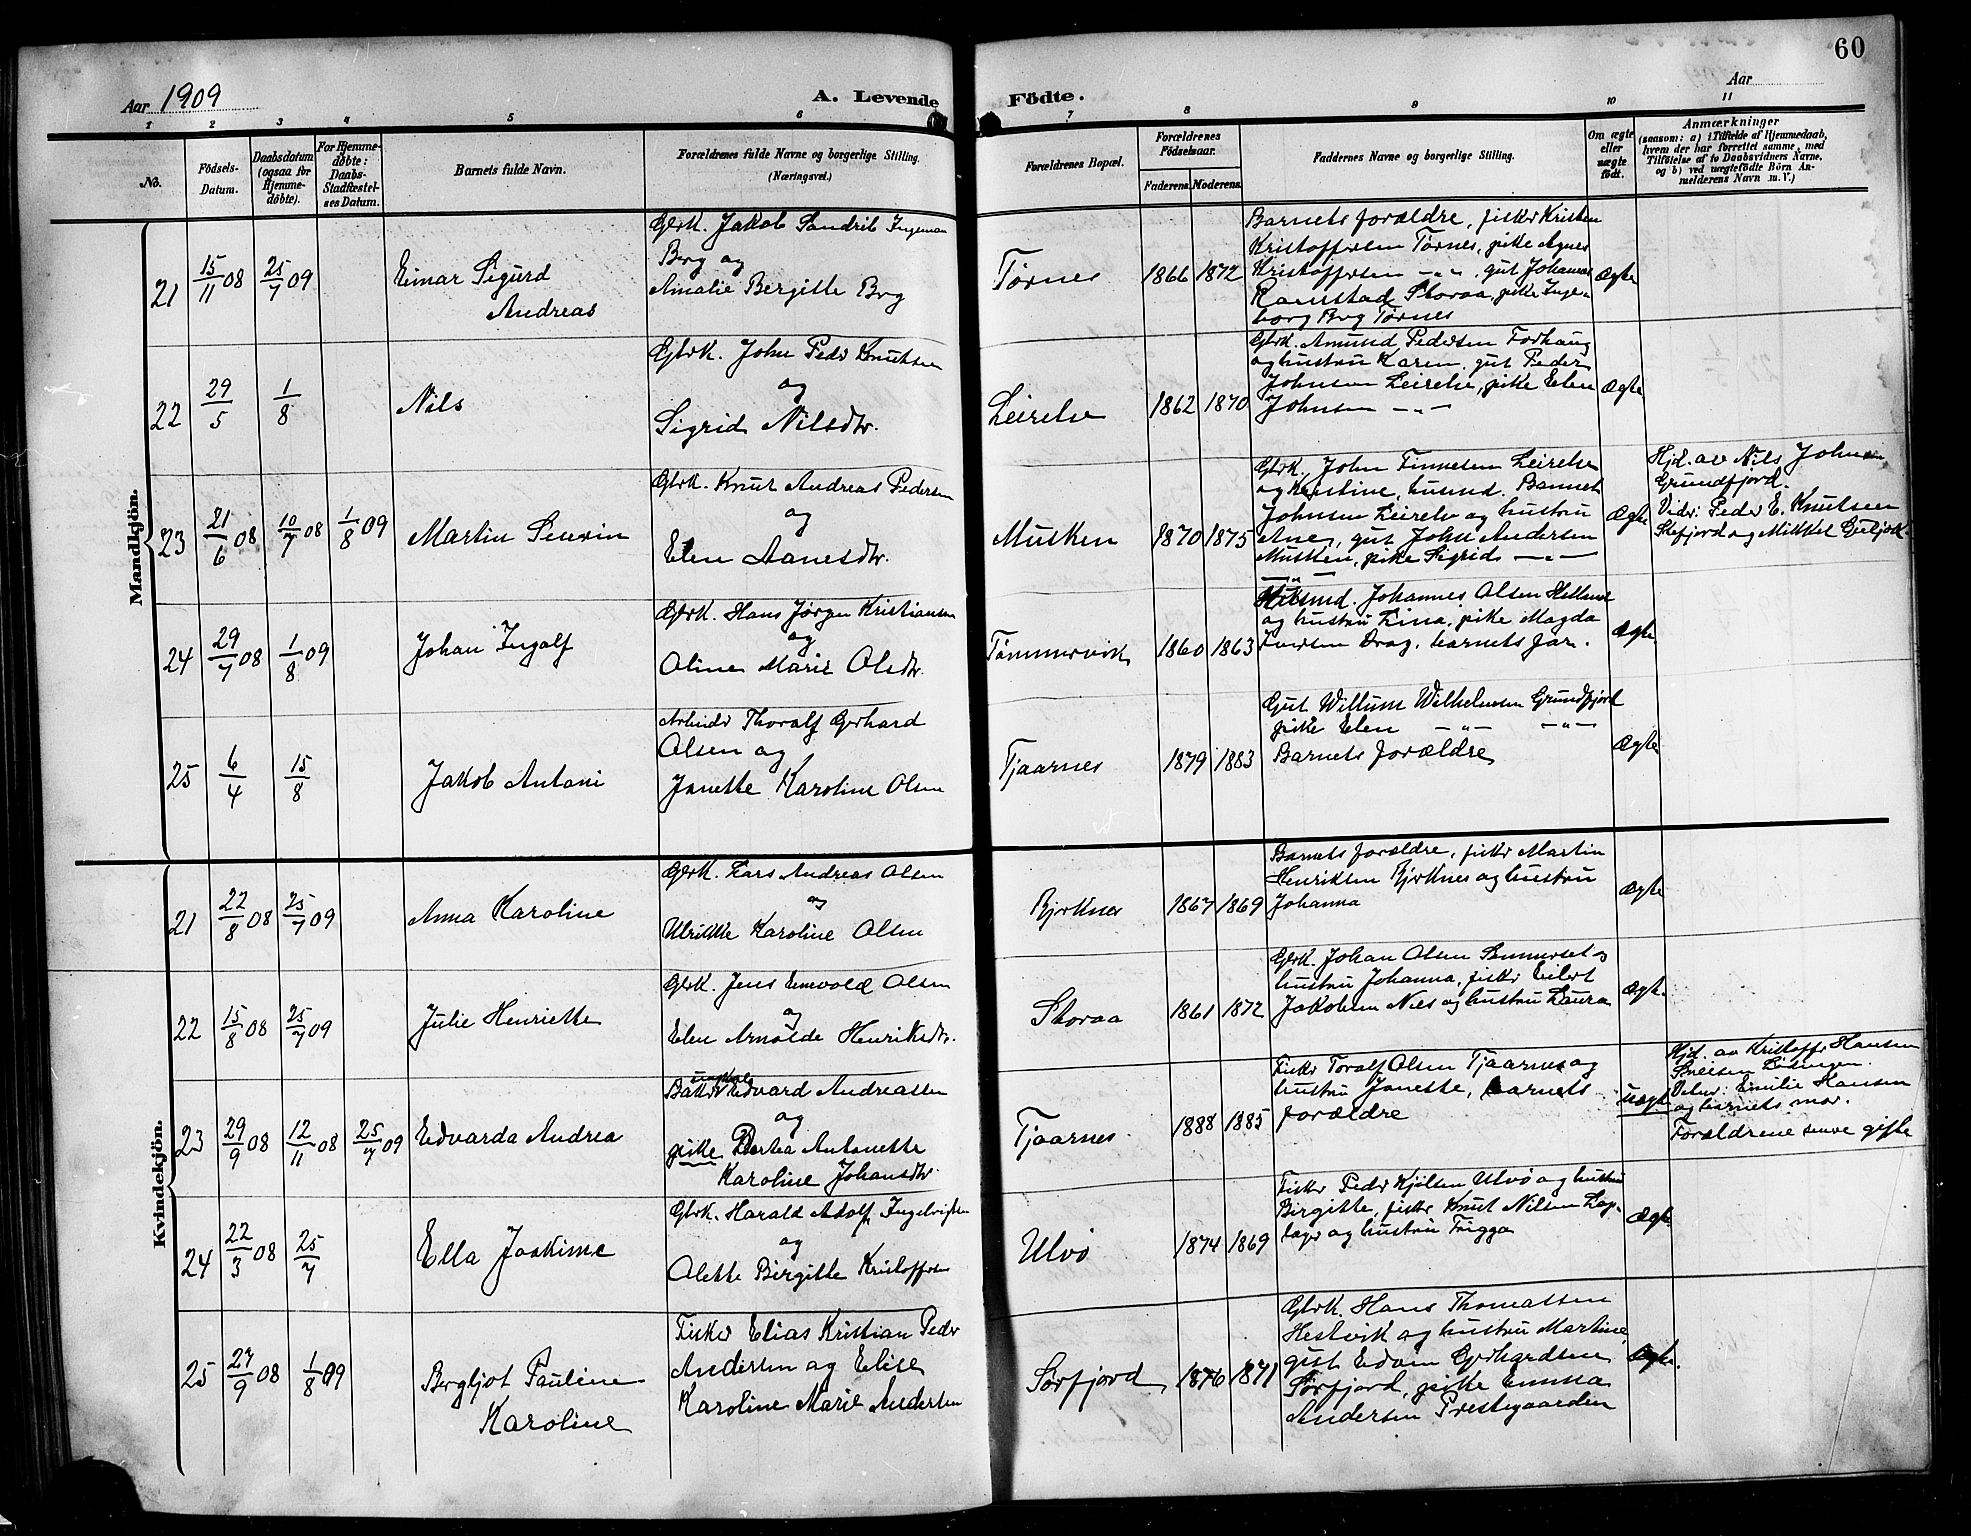 60
Aar 1909
A. Levende Födte.
Aar
1 2 3 4 5 6 7 8 9 10 11
No.
Födsels-Datum.
Daabsdatum (ogsaa for Hjemme-döbte).
For Hjemme-döbte: Daabs-Stadfæstel-ses Datum.
Barnets fulde Navn.
Forældrenes fulde Navne og borgerlige Stilling. (Næringsvei.)
Forældrenes Bopæl.
Forældrenes Födselsaar.
Faderens. Moderens.
Faddernes Navne og borgerlige Stilling.
Om ægte eller uægte født.
Anmærkninger
(saasom: a) i Tilfælde af Hjemmedaab,
hvem der har forrettet samme, med
Tilføielse af to Daabsvidners Navne,
og b) ved uægtefödte Börn An-
melderens Navn m. V.)
Mandkjön.
21 15/11 08 25/7 09
Einar Sigurd
Andreas
Gbrk. Jakob Sandrik Ingeman
Berg og
Amalie Bergitte Brg
Tørnes 1866 1872
Barnets forældre, fiskr Kristen
Kristoffersen Tørnes, pike Agnes
Kristoffersen — " — gut Johannes
Ramstad Storaa, pike Inge-
borg Brg Tørnes
Ægte
22 29/5 1/8
Nils
Gbrk. John Pedr Knutsen
og
Sigrid Nilsdtr.
Leirelv 1862 1870
Gbrk. Amund Pedersen Forhaug
og hustru Karen, gut Peder
Johnsen Leirelv, pike Elen
Johnsen — " —
Ægte
23 21/6 08 10/7 08 1/8 09
Martin Severin
Gbrk. Knut Andreas Pedersen
og
Elen Aanesdtr.
Musken 1870 1875
Gbrk. John Finnesen Leirelv
og Kristine, husmd. Bannet
Johnsen Leirelv og hustru
Ane, gut John Andersen
Musken, pike Sigrid — " —
Ægte
Hjd. av Nils Johnsen
Grundfjord.
Vidr: Pedr E. Knutsen
Skefjord og Mikkel
24 29/7 08 1/8 09
Johan Ingolf
Gbrk. Hans Jørgen Kristiansen
og
Oline Marie Olsdtr.
Tømmervik 1860 1863
Husmd. Johannes Olsen
og hustru Lina, pike Magda
Iversen Drag, barnets far.
Ægte
25 6/4 15/8
Jakob Antoni
Arbeidr Thoralf Gerhard
Olsen og
Janette Karoline Olsen
Tjaarnes 1879 1883
Gut Willum Wilhelmsen Grundfjord
pike Elen — " — — " —
Barnets forældre
Ægte
Kvindekjön.
21 22/8 08 25/7 09
Anna Karoline
Gbrk. Lars Andreas Olsen
og
Ulrikke Karoline Olsen
Bjrknes 1867 1869
Barnets forældre, fiskr Martin
Henriksen Bjrknes og hustru
Johanna
Ægte
22 15/8 08 25/7 09
Julie Henriette
Gbrk. Jens Enevold Olsen
og
Elen Arnolde Henriksdtr.
Storaa 1861 1872
Gbrk. Johan Olsen Sommerset og
hustru Johanna, fiskr Eilert
Jakobsen Nes og hustru Laura
Ægte
23 29/9 08 12/11 08 25/7 09
Edvarda Andrea
ungkar
Edvard Andreassen
og
pike Dortea Antonette
Karoline Johansdtr.
Tjaarnes 1888 1885
Fiskr Toralf Olsen Tjaarnes og
hustru Janette, barnets
forældre
uægte
Hjd. av Kristoffr Hansen
Vidnr: Emilie Hansen
og barnets mor.
Forældrene senere gifte
24 22/3 08 25/7
Ella Joakime
Gbrk. Harald Adolf Ingebrigtsen
og
Olette Birgitte Kristoffrsen
Ulvø 1874 1869
Fiskr Pedr Kjilsen Ulvø og hustru
Birgitte, fiskr Knut Nilsen
og hustru Trigga
Ægte
25 27/9 08 1/8 09
Bergljot Pauline
Karoline
Fisker Elias Kristian Pedr
Andersen og Elise
Karoline Marie Andersen
Sørfjord 1876 1871
Gbrk. Hans Thomassen
Hestvik og hustru Martine,
gut Edvin Gerhardsen
Sørfjord, pike Emma
Andersen Prestegaarden
Ægte.